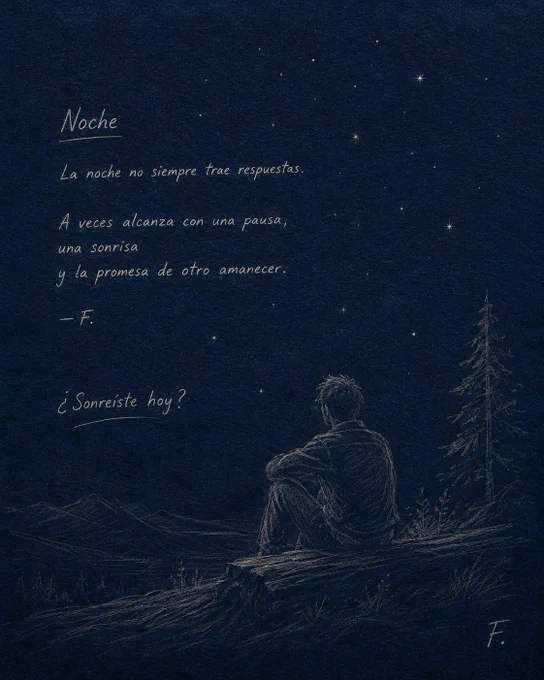 Noche
La noche no siempre trae respuestas.
A veces alcanza con una pausa,
una sonrisa
y la promesa de otro amanecer.
— F.
¿Sonreíste hoy?
F.